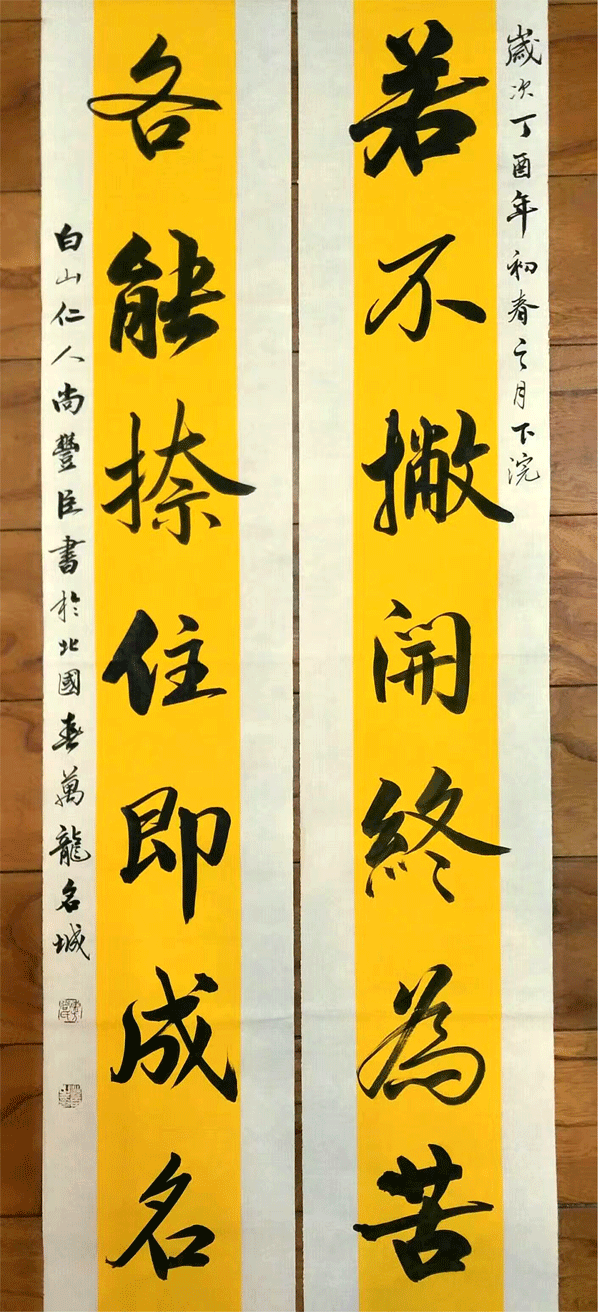 歲次丁酉年初春之月下浣
若不撇開終為苦
各能捺住即成名
白山仁人尚豐臣書於北國春萬龍名城